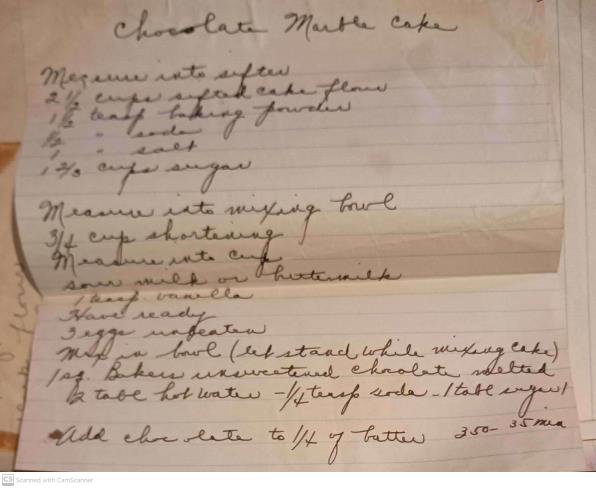 Chocolate Marble Cake
Measure into sifter
2 1/2 cups sifted cake flour
1 1/2 teasp baking powder
1/2 " soda
1 " salt
1 2/3 cups sugar
Measure into mixing bowl
3/4 cup shortening
Measure into cup
sour milk or buttermilk
1 teasp. vanilla
Have ready
3 eggs unbeaten
Mix in bowl (let stand while mixing cake)
1 sq. Bakers unsweetened chocolate melted
1/2 tabl hot water - 1/4 teasp soda - 1 tabl sugar
Add choc late to 1/4 of batter 350 - 35 min
CS Scanned with CamScanner